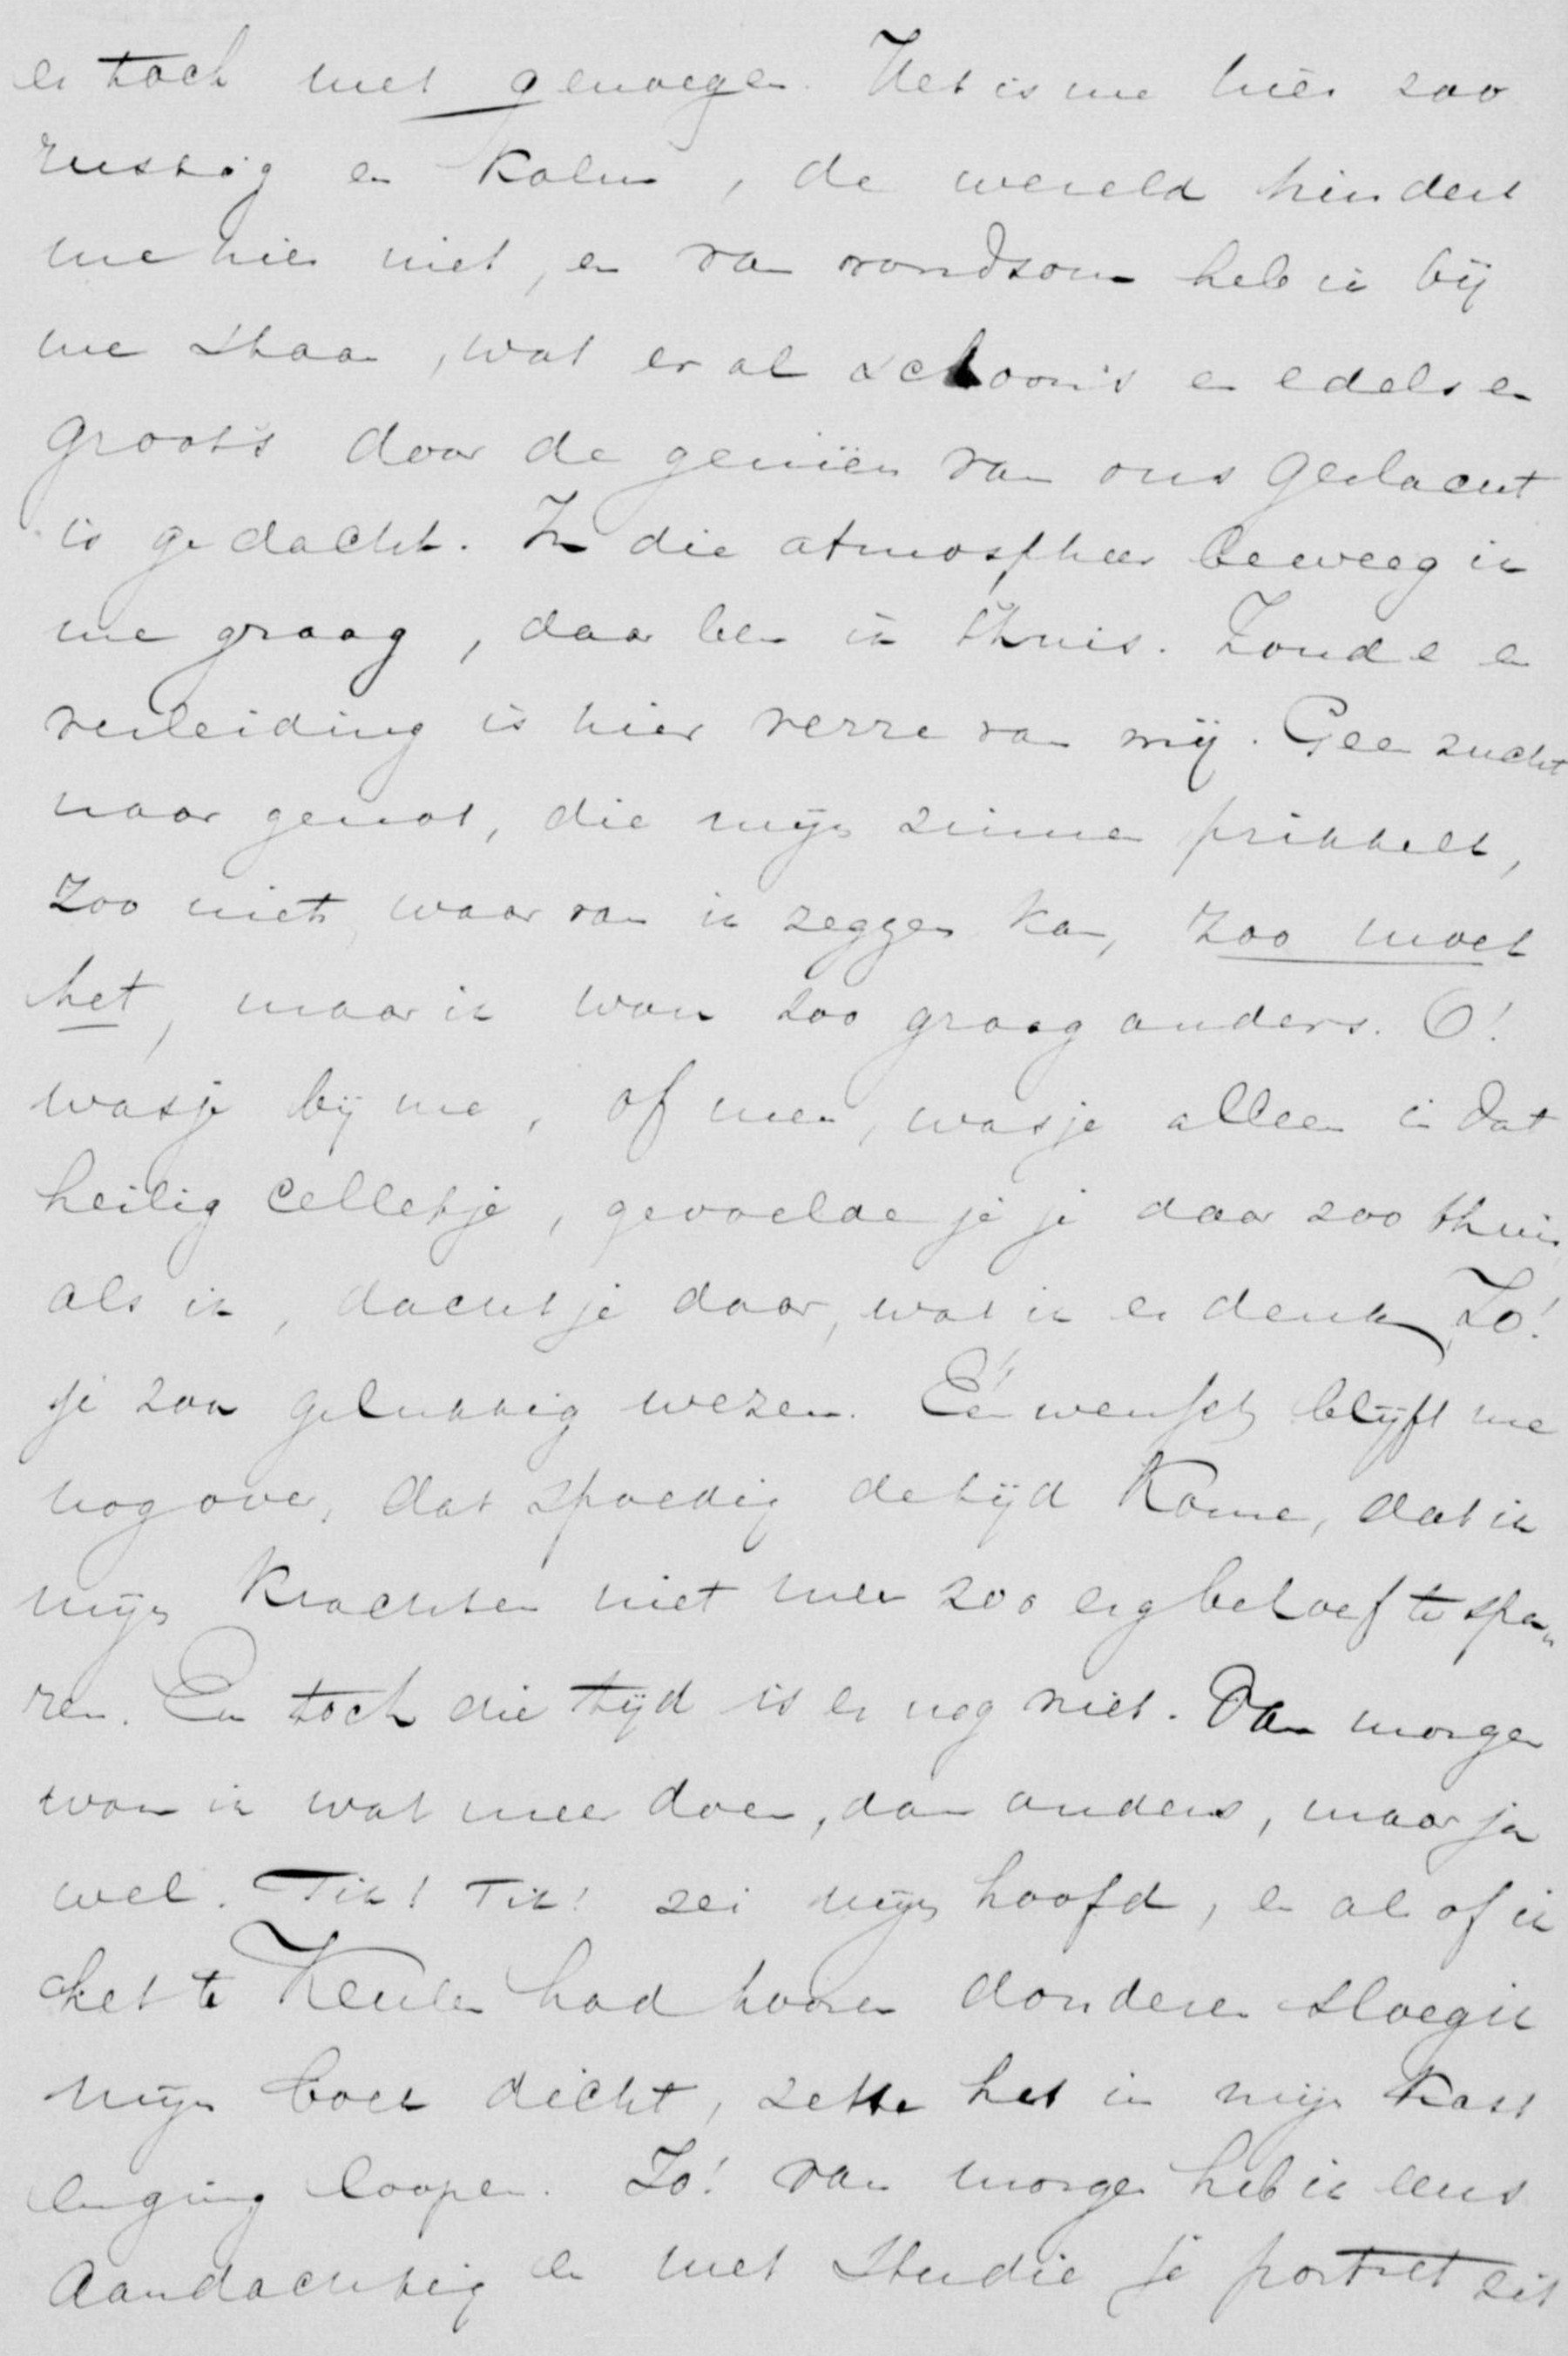 er toch met genoegen. Het is me hier zoo
rustig en kalm, de wereld hindert
me hier niet, en van rondsom heb ik bij
me staan, wat er al schoon's en edels en
groots door de genieën van ons geslacht
is gedacht. In die atmospheer beweeg ik
me graag, daar ben ik thuis. Zonde en
verleiding is hier verre van mij. Geen zucht
naar genot, die mijn zinnen prikkelt,
zoo niets, waarvan ik zeggen kan, zoo moet
het, maar ik wou zoo graag anders. O!
was je bij me, of neen, was je alleen in dat
heilig celletje, gevoelde je je daar zoo thuis
als ik, dacht je daar, wat ik er denk, Jo!
je zou gelukkig wezen. Één wensch blijft me
nog over, dat spoedig de tijd kome, dat ik
mijn krachten niet meer zoo erg behoef te spa„
ren. En toch die tijd is er nog niet. Van morgen
wou ik wat meer doen, dan anders, maar ja
wel. Tik! Tik! zei mijn hoofd, en als of ik
het te Keulen had hooren donderen sloeg ik
mijn boek dicht, zette het in mijn kast
en ging loopen. Jo! van morgen heb ik eens
aandachtig en met studie je portret zit